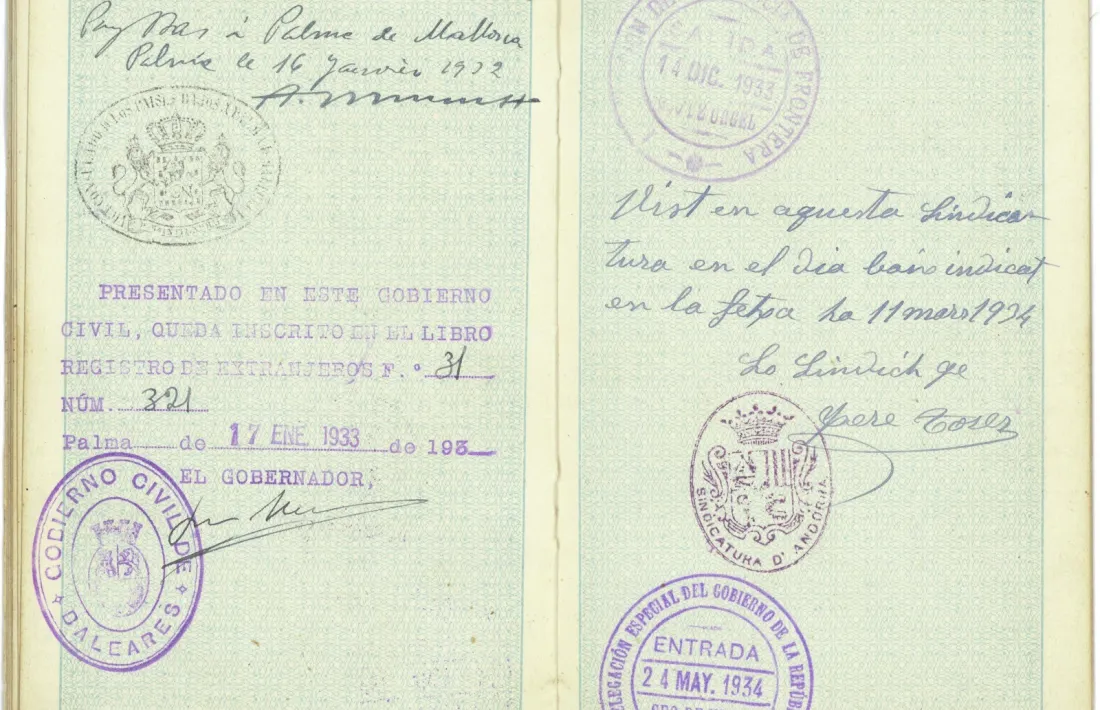 Pays Bas à Palma de Mallorca
Palma le 16 Janvier 1932
PRESENTADO EN ESTE GOBIERNO
CIVIL, QUEDA INSCRITO EN EL LIBRO
REGISTRO DE EXTRANJEROS F.º 31
NÚM. 321
Palma de 17 ENE 1933 de 193
EL GOBERNADOR,
GOBIERNO CIVIL DE BALEARES
DE FRONTERA
SALIDA
14 DIC. 1933
Vist en aquesta Sindica-
tura en el dia indicat
en la fetxa ha 11 mars 1934
Lo Sindich
Pere
SINDICATURA D' ANDORRA
DELEGACIÓN ESPECIAL DEL GOBIERNO DE LA REPÚB
ENTRADA
24 MAY. 1934